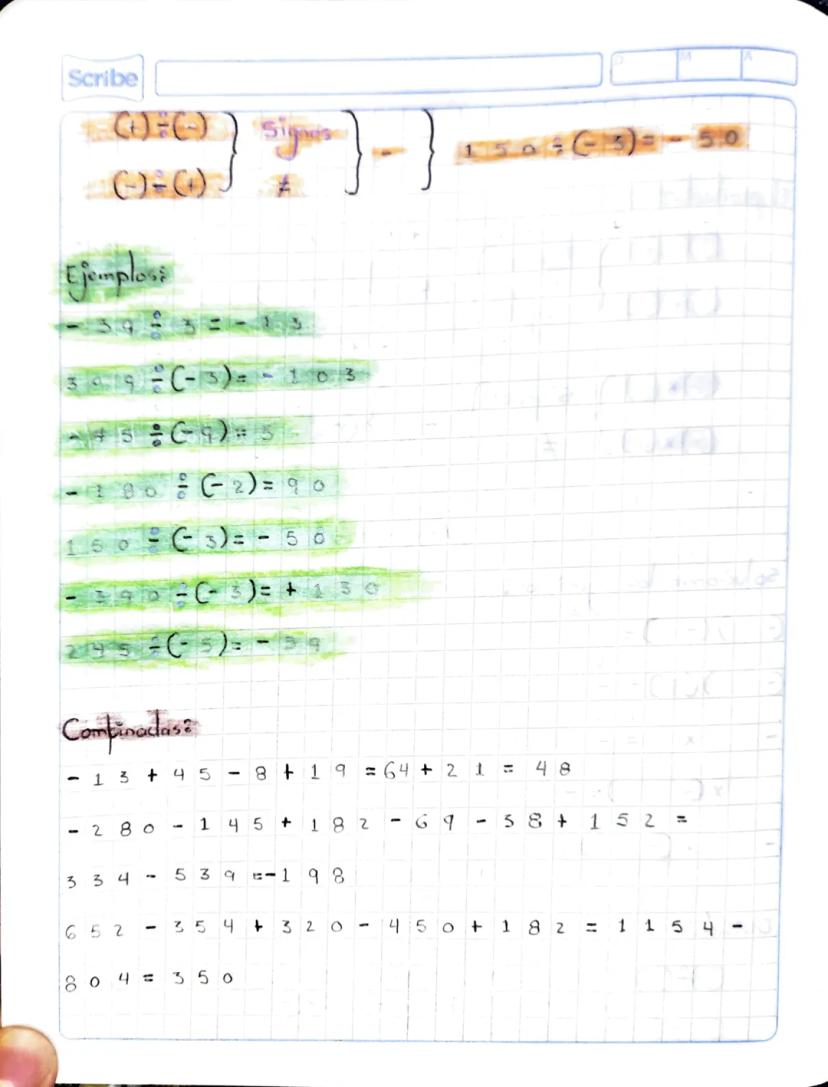 Scribe
D M A
(+)÷(-) } Signos } - } 150÷(-3)=-50
(-)÷(+) ≠
Ejemplos:
-39÷3=-13
309÷(-3)=-103
-45÷(-9)=5
-180÷(-2)=90
150÷(-3)=-50
-390÷(-3)=+130
245÷(-5)=-39
Combinadas:
-13+45-8+19=64+21=48
-280-145+182-69-58+152=
334-539=-198
652-354+320-450+182=1154-
804=350